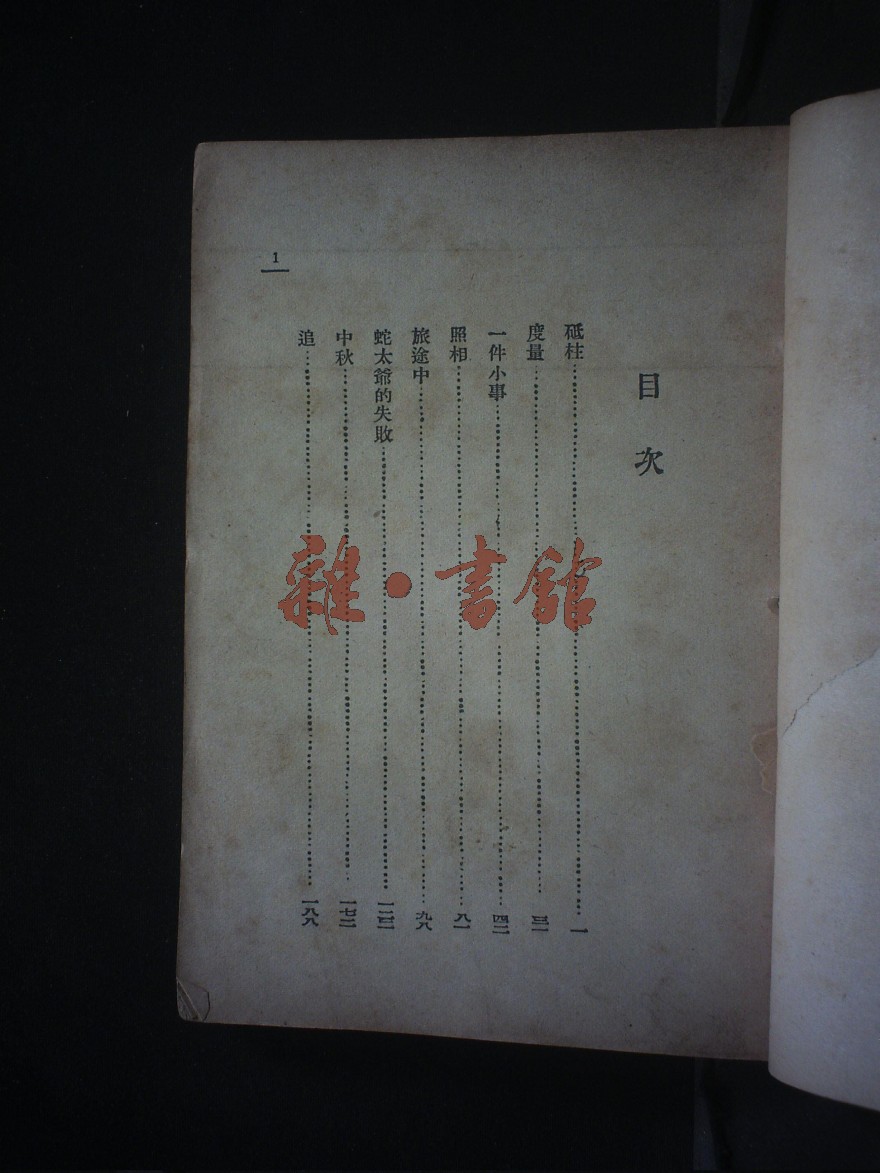 目次
砥柱……一
度量……
一件小事……四二
照相……八一
旅途中……九八
蛇太爺的失敗……
中秋……一七二
追……一八八
1
雜·書館